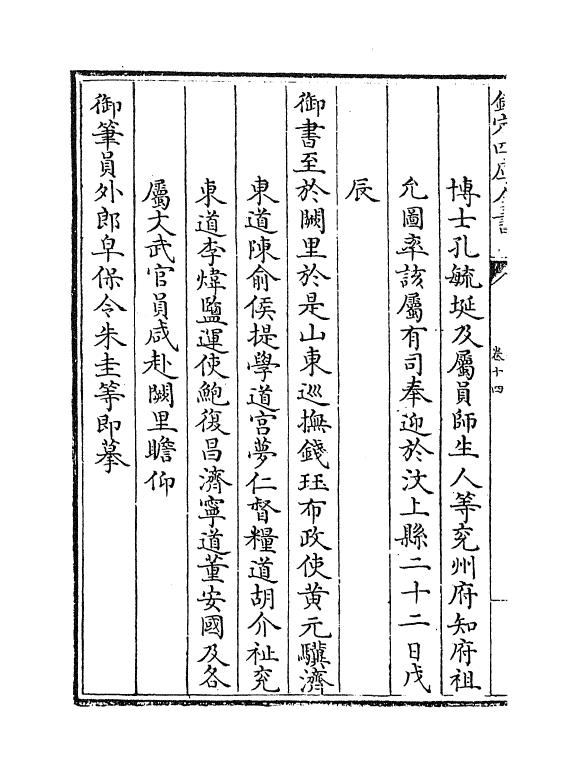 欽定四庫全書
卷十四
博士孔毓埏及屬員師生人等兖州府知府祖
允圖率該屬有司奉迎於汶上縣二十二日戊
辰
御書至於闕里於是山東巡撫錢珏布政使黄元驥濟
東道陳俞侯提學道宫夢仁督糧道胡介祉兖
東道李煒鹽運使鮑復昌濟寧道董安國及各
屬大武官員咸赴闕里瞻仰
御筆員外郎皁保令朱圭等即摹